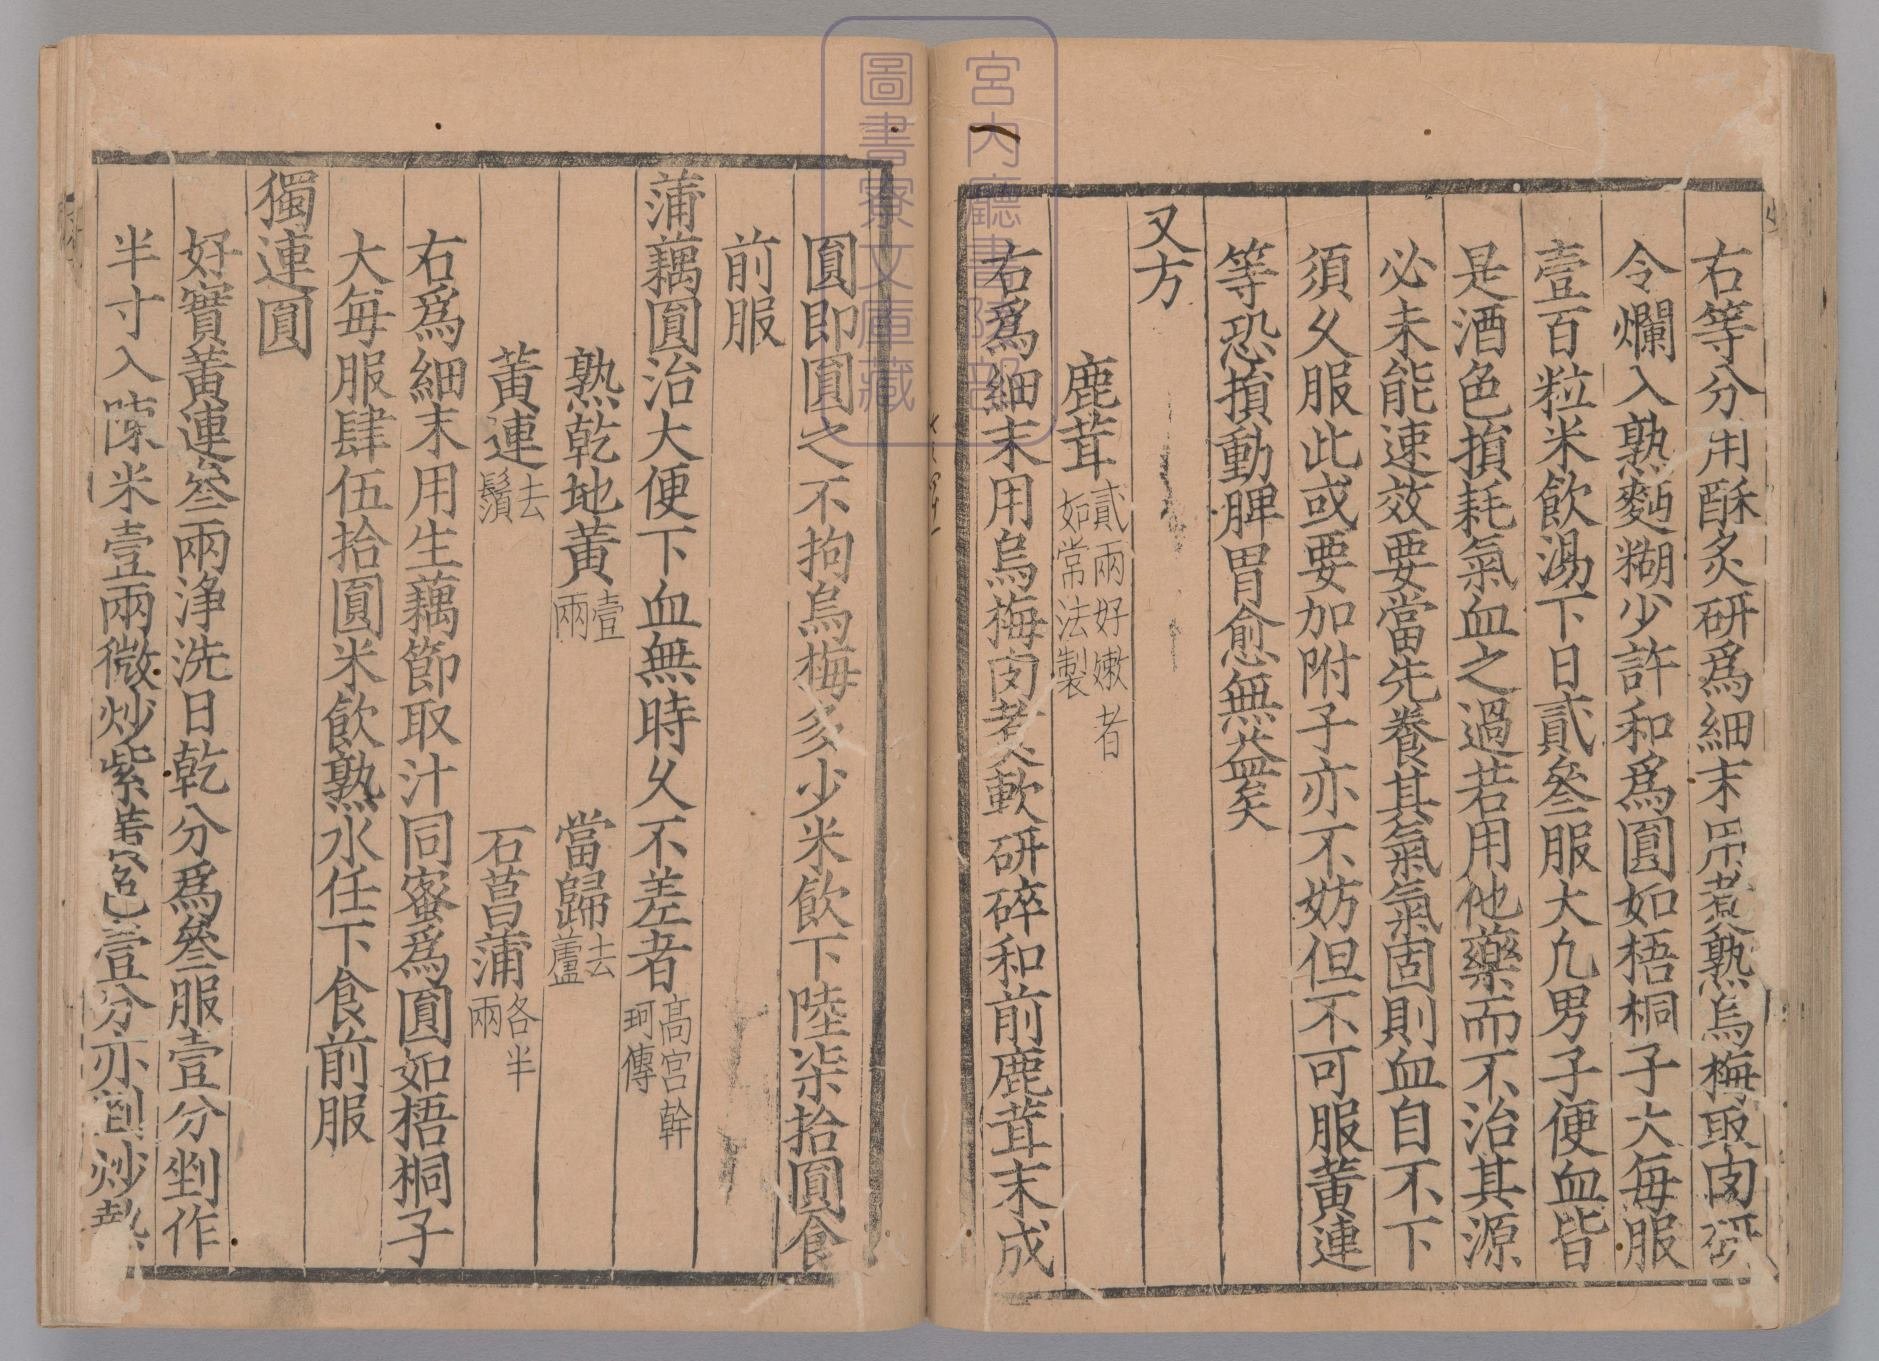 右等分用酥炙研爲細末用煮熟烏梅取肉研
令爛入熟麪糊少許和爲圓如梧桐子大每服
壹百粒米飲湯下日貳叁服大凢男子便血皆
是酒色損耗氣血之過若用他藥而不治其源
必未能速效要當先養其氣氣固則血自不下
須乆服此或要加附子亦不妨但不可服黃連
等恐損動脾胃愈無益矣
又方
鹿茸貳兩好嫩者如常法製
右爲細末用烏梅肉煮軟研碎和前鹿茸末成
圓即圓之不拘烏梅多少米飲下陸柒拾圓食
前服
蒲藕圓治大便下血無時乆不差者高宮幹珂傳
熟乾地黃壹兩 當歸去蘆
黃連去鬚 石菖蒲各半兩
右爲細末用生藕節取汁同蜜爲圓如梧桐子
大每服肆伍拾圓米飲熟水任下食前服
獨連圓
好實黃連叁兩淨洗日乾分爲叁服壹分剉作
半寸入陳米壹兩微炒紫色壹分亦剉炒熟
宮内廳書陵部
圖書寮文庫藏